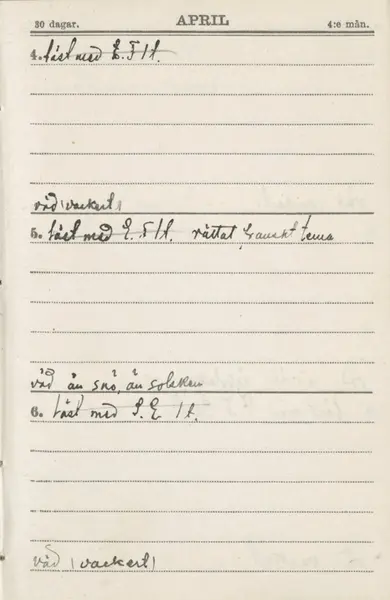 30 dagar. APRIL 4:e mån.
4. läst med E. F H.
väd. vackert
5. läst med E. F H. rättat franskt tema
väd än snö, än solsken
6. läst med E H.
väd vackert